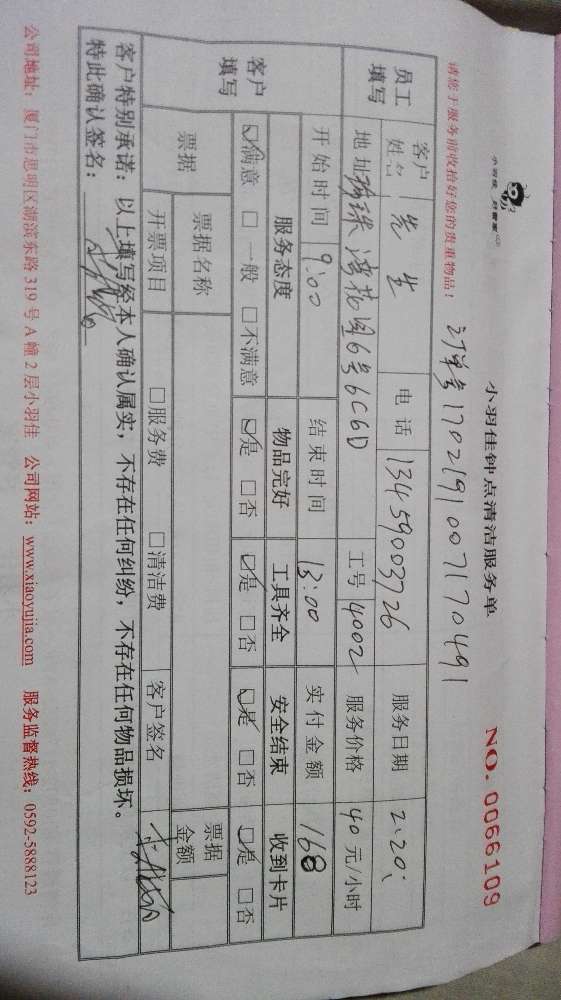 小羽佳 好管家
小羽佳钟点清洁服务单
NO. 0066109
请您于服务前收拾好您的贵重物品！
订单号170219100717170491
员工填写
客户姓名 先生 电话 13459003726 服务日期 2.20
地址 湾花园6号6C6D 工号 4002 服务价格 40元/小时
客户填写
开始时间 9:00 结束时间 13:00 实付金额 168
服务态度 物品完好 工具齐全 安全结束 收到卡片
☑满意 □一般 □不满意 ☑是 □否 ☑是 □否 ☑是 □否 ☑是 □否
票据 票据名称 票据金额
开票项目 □服务费 □清洁费 客户签名
客户特别承诺：以上填写经本人确认属实，不存在任何纠纷，不存在任何物品损坏。
特此确认签名：
公司地址：厦门市思明区湖滨东路319号A幢2层小羽佳 公司网站：www.xiaoyujia.com 服务监督热线：0592-5888123